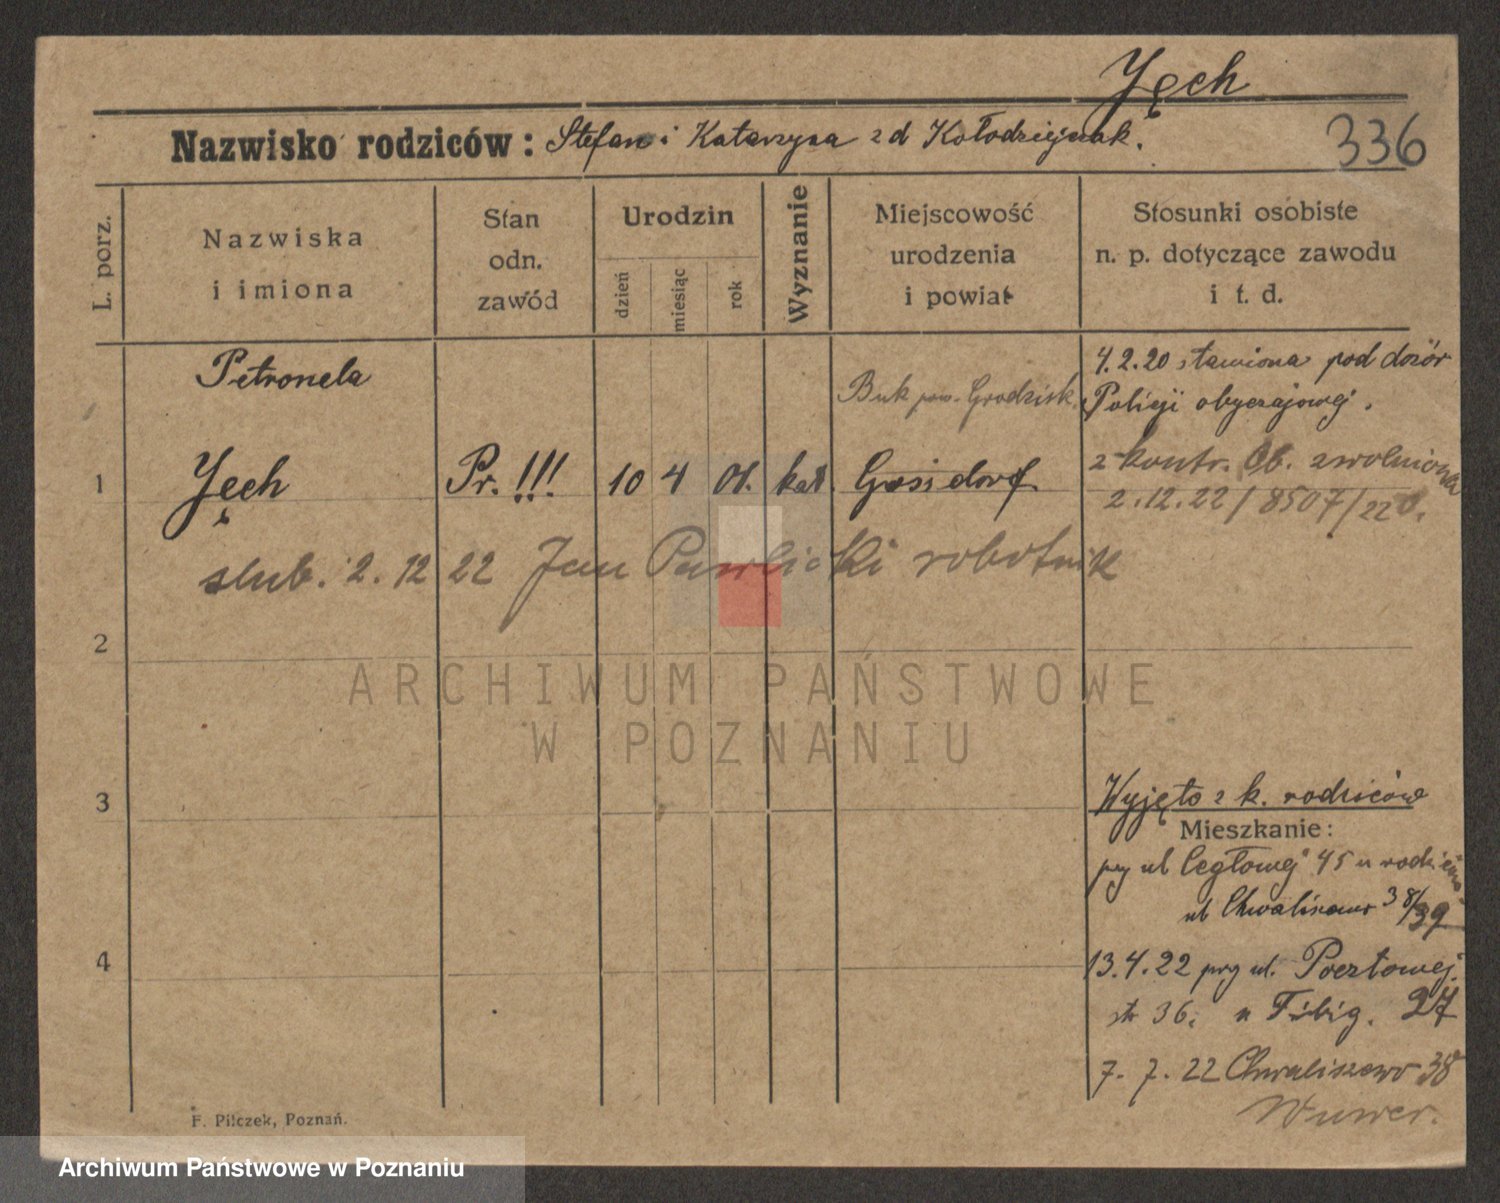 Jęch
Nazwisko rodziców: Stefan i Katarzyna z d Kołodziejczak.
336
L. porz.
Nazwiska
i imiona
Stan
odn.
zawód
Urodzin
dzień
miesiąc
rok
Wyznanie
Miejscowość
urodzenia
i powiat
Stosunki osobiste
n. p. dotyczące zawodu
i t. d.
Petronela
Buk pow. Grodzisk.
4.2.20 stawiona pod dozór
Policji obyczajowej.
1
Jęch
Pr. !!!
10
4
01.
kat.
z kontr. Ob. zwolniona
2.12.22/8507/22
slub. 2.12 22 Jan Pawlicki robotnik
2
ARCHIWUM PAŃSTWOWE
W POZNANIU
3
Wyjęto z k. rodziców
Mieszkanie:
prz ul Cegłowej 45 u rodziców
ul Chwaliszewo 38/39
4
13.4.22 prz ul. Pocztowej.
36. u Fibig. 27
7. 7. 22 Chwaliszewo 38
F. Pilczek, Poznań.
Archiwum Państwowe w Poznaniu